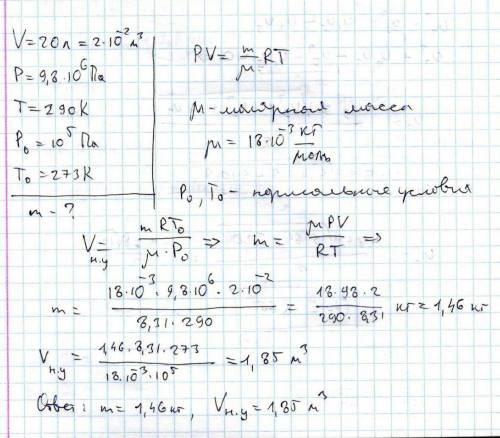 V=20л=2·10⁻²м³
P=9,8·10⁶Па
T=290K
P₀=10⁵Па
T₀=273K
m-?
PV=m/μ RT
μ-молярная масса
μ=18·10⁻³ кг/моль
P₀, T₀- нормальные условия
Vн.у = mRT₀/μ·P₀ => m= μPV/RT =>
m= 18·10⁻³·9,8·10⁶·2·10⁻²/8,31·290 = 18·98·2/290·8,31 кг=1,46 кг
Vн.у = 1,46·8,31·273/18·10⁻³·10⁵ =1,85 м³
Ответ: m=1,46кг, Vн.у=1,85м³